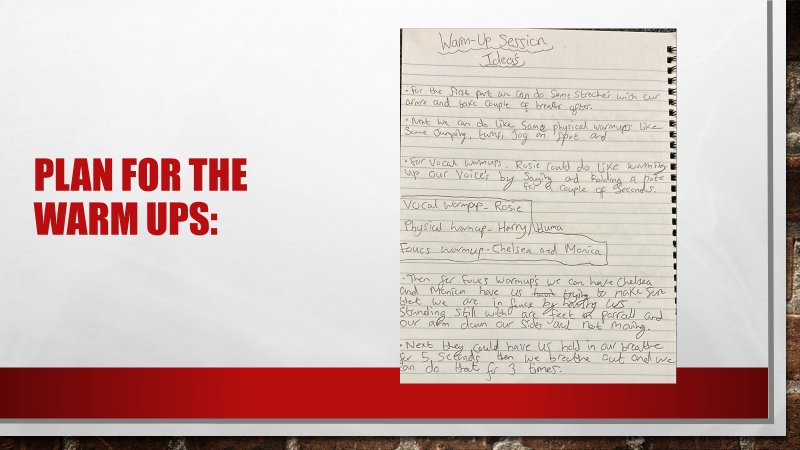 PLAN FOR THE
WARM UPS:
Warm-Up Session
Ideas
• For the first part we can do some streches with our
arms and take couple of breaths after.
• Next we can do like some physical warmups like
some Jumping, turns, Jog on spot and
• For Vocal warmups - Rosie could do like warming
up our Voices by Saying and holding a note
for a couple of seconds.
Vocal warmpup - Rosie
Physical warmup - Harry/Huma
Foucs warmup - Chelsea and Monica
• Then for foucs warmups we can have Chelsea
and Monica have us to make sure
that we are in foucs by having us
standing still with are feet in parrall and
our arm down our sides and not moving.
• Next they could have us hold in our breathe
for 5 seconds then we breathe out and we
can do that for 3 times.